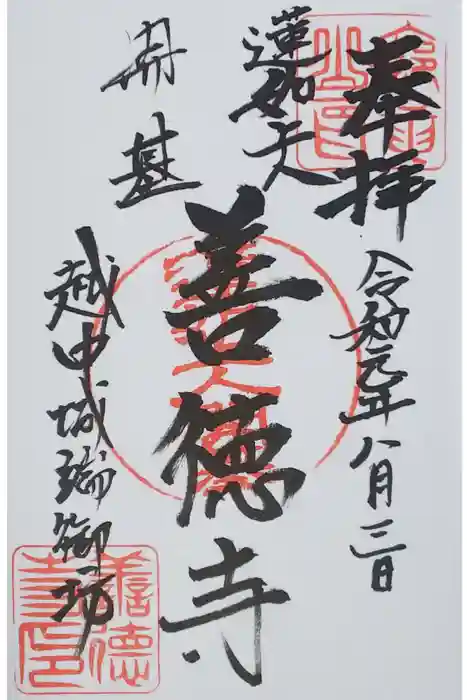 奉拝
令和元年八月三日
蓮如
善徳寺
開基
越中城端御坊
善徳寺印